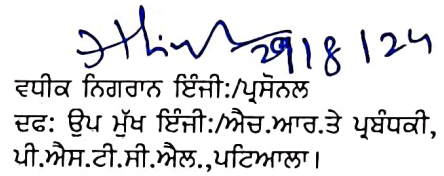 29/8/24
ਵਧੀਕ ਨਿਗਰਾਨ ਇੰਜੀ:/ਪ੍ਰਸੋਨਲ
ਦਫ: ਉਪ ਮੁੱਖ ਇੰਜੀ:/ਐਚ.ਆਰ.ਤੇ ਪ੍ਰਬੰਧਕੀ,
ਪੀ.ਐਸ.ਟੀ.ਸੀ.ਐਲ.,ਪਟਿਆਲਾ।